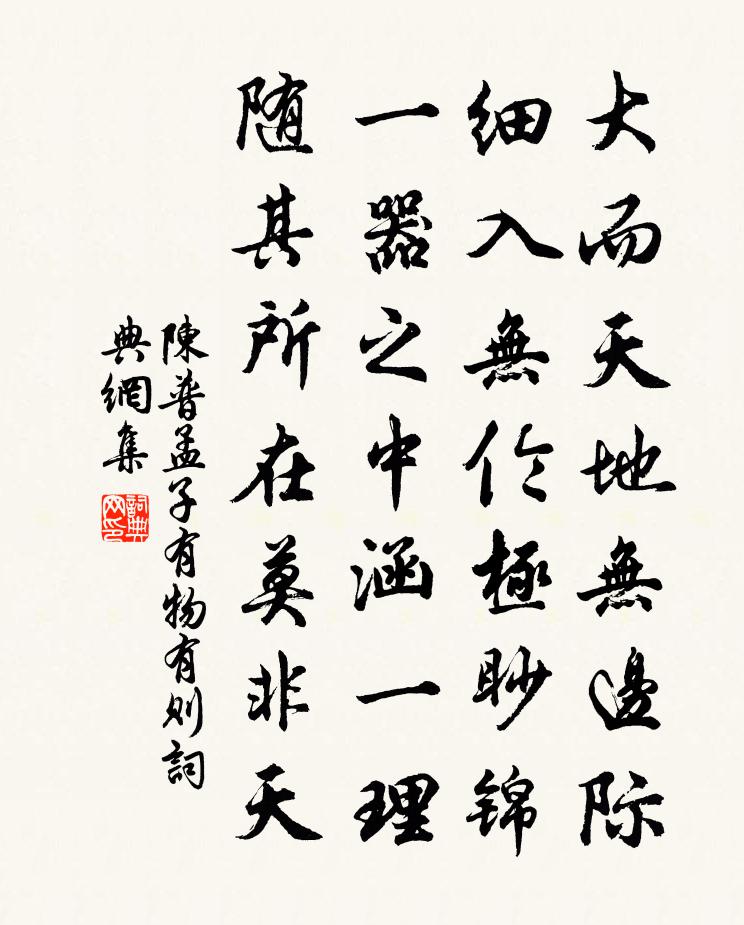 大而天地無邊际
细入無伦極眇锦
一器之中涵一理
随其所在莫非天
陳普孟子有物有则詞
典網集
詞典
网印